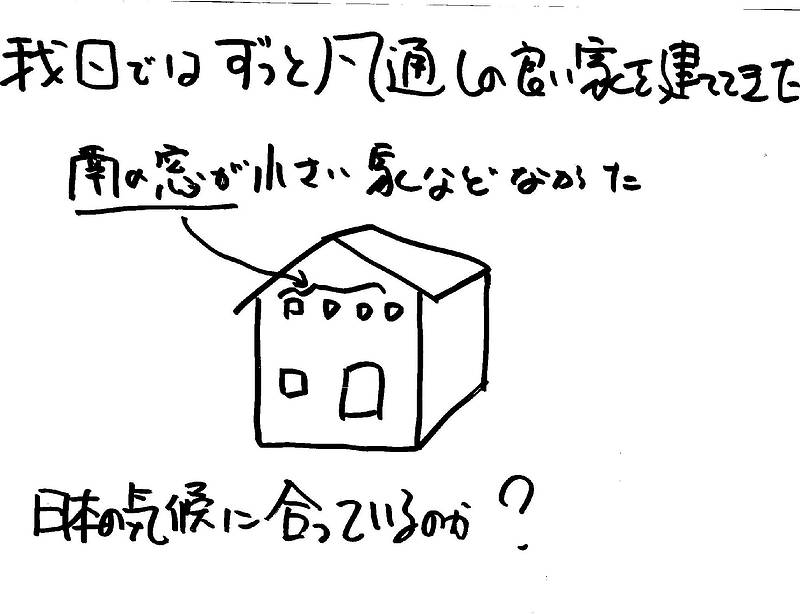 我日ではずっと風通しの良い家を建ててきた
南の窓が小さい家などなかた
日本の気候に合っているのか?